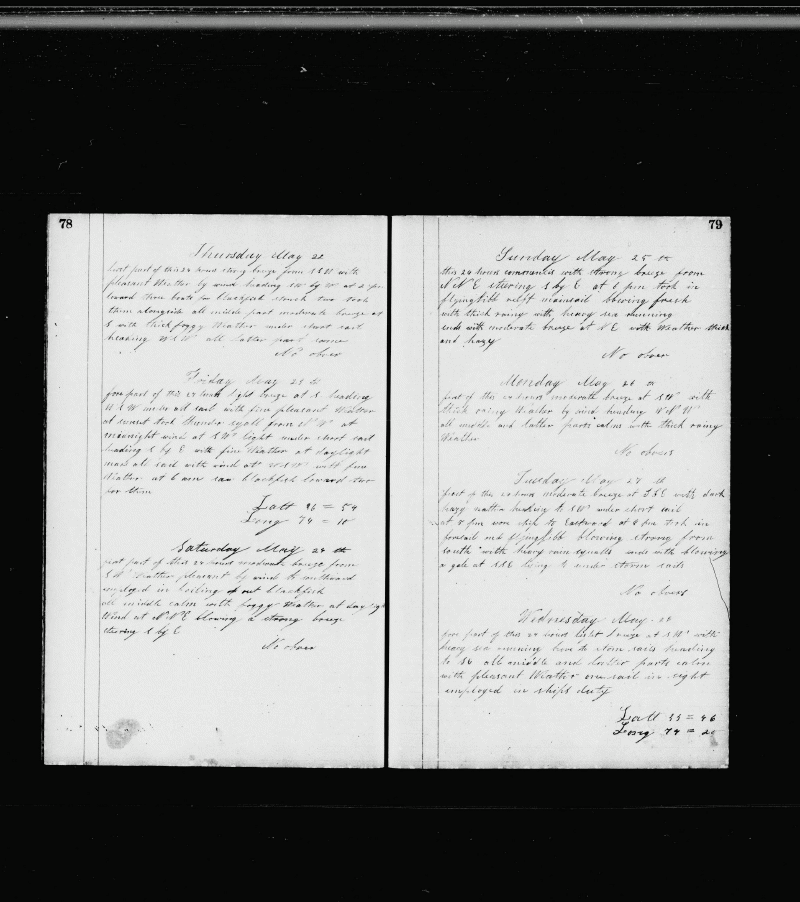 78
Thursday May 22
first part of this 24 hours strong breeze from SSW with
pleasant Weather by wind heading SW by W at 2 pm
lowered three boats for blackfish struck two took
them alongside all middle part moderate breeze at
S with thick foggy Weather under short sail
heading WSW all latter part same
No obser
Friday May 23
fore part of this 24 hours light breeze at S heading
WSW under all sail with fine pleasant Weather
at sunset took thunder squall from NW at
midnight wind at SW light under short sail
heading S by E with fine Weather at daylight
made all sail with wind at WSW with fine
Weather at 6 am saw blackfish lowerd
for them
Latt 36 = 54
Long 74 = 10
Saturday May 24 th
first part of this 24 hours moderate breeze from
SW Weather pleasant by wind to southward
employed in boiling out blackfish
all middle calm with foggy Weather at day light
Wind at NNE blowing a strong breeze
steering S by E
No obser
79
Sunday May 25 th
this 24 hours commences with strong breeze from
NNE steering S by E at 6 pm took in
flyingjibb reeft mainsail blowing fresh
with thick rainy with heavy sea running
ends with moderate breeze at NE with Weather thick
and hazy
No obser
Monday May 26 th
first of this 24 hours moderate breeze at SW with
thick rainy Weather by wind heading WNW
all middle and latter parts calm with thick rainy
Weather
No obsers
Tuesday May 27 th
first of this 24 hours moderate breeze at SSE with dark
hazy weather heading to SW under short sail
at 5 pm wore ship to Eastward at 9 pm took in
foresail and flyingjibb blowing strong from
south with heavy rain squalls ends with blowing
a gale at SSE lying to under storm sails
No obsers
Wednesday May 28
fore part of this 24 hours light breeze at SW with
heavy sea running hove to storm sails heading
to SE all middle and latter parts calm
with pleasant Weather one sail in sight
employed in ships duty
Latt 35 = 46
Long 74 = 20